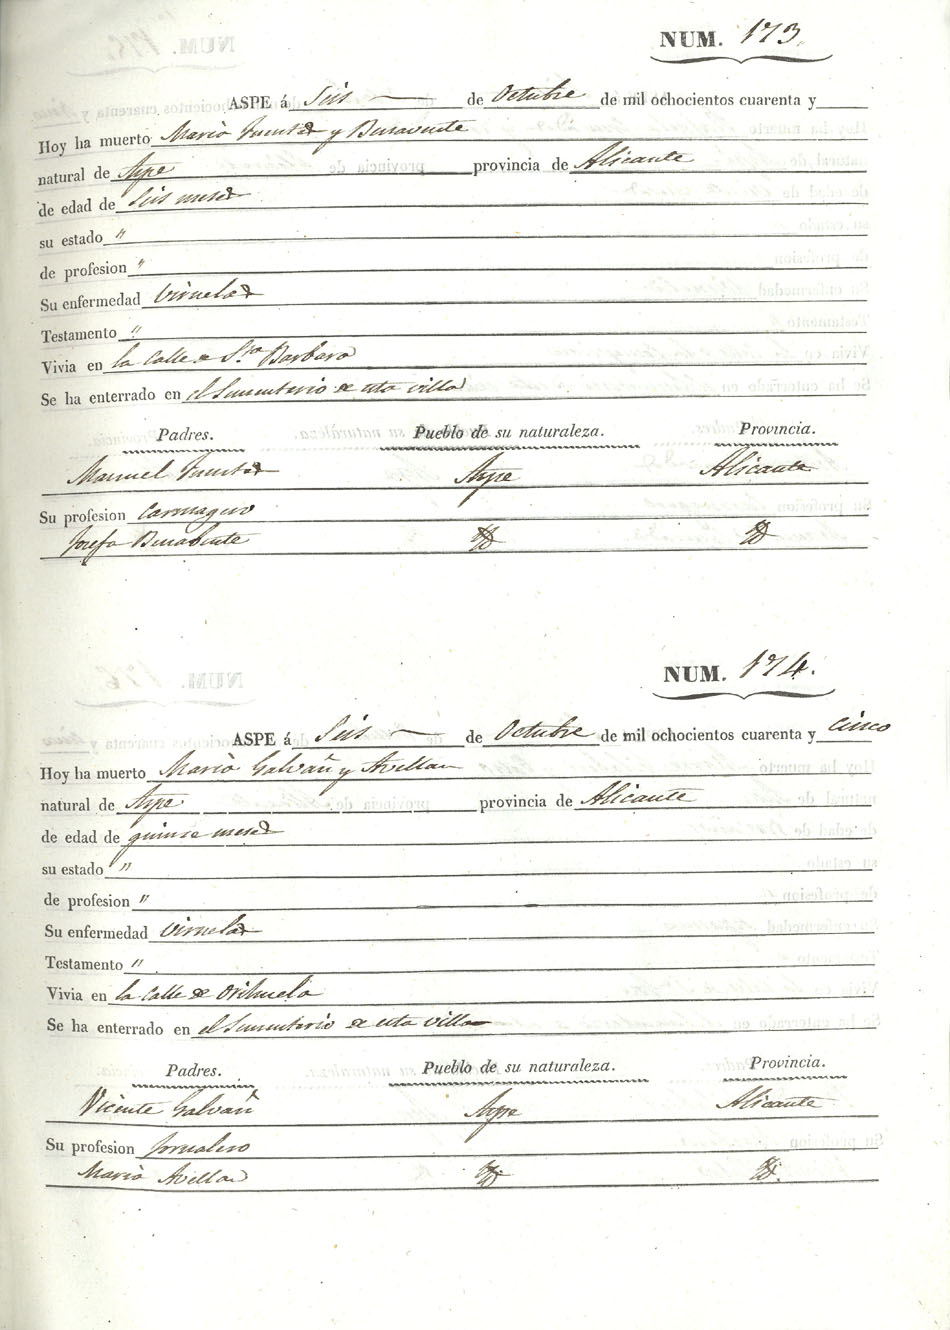 NUM. 173.
ASPE á Seis de Octubre de mil ochocientos cuarenta y
Hoy ha muerto Maria Fuentes y Benavente
natural de Aspe provincia de Alicante
de edad de Seis meses
su estado "
de profesion "
Su enfermedad Viruelas
Testamento "
Vivia en la Calle de Sta Barbara
Se ha enterrado en el Sementerio de esta villa
Padres. Pueblo de su naturaleza. Provincia.
Manuel Fuentes Aspe Alicante
Su profesion
Josefa Benabente
NUM. 174.
ASPE á Seis de Octubre de mil ochocientos cuarenta y cinco
Hoy ha muerto Maria Galvañ y Avellan
natural de Aspe provincia de Alicante
de edad de quinse meses
su estado "
de profesion "
Su enfermedad Viruelas
Testamento "
Vivia en la Calle de Orihuela
Se ha enterrado en el Sementerio de esta villa
Padres. Pueblo de su naturaleza. Provincia.
Vicente Galvañ Aspe Alicante
Su profesion Jornalero
Maria Avellan